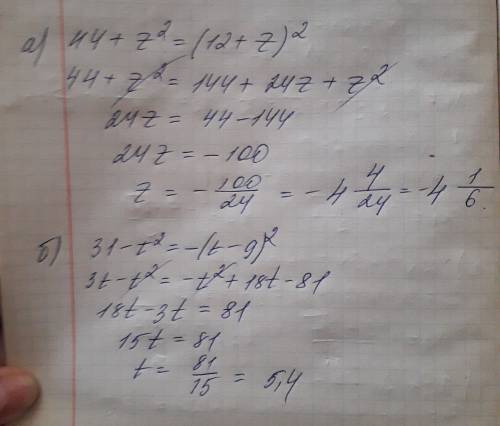 а) 44 + z² = (12 + z)²
44 + z² = 144 + 24z + z²
24z = 44 - 144
24z = -100
z = -100/24 = -4 4/24 = -4 1/6.
б) 31 - t² = -(t - 9)²
3t - t² = -t² + 18t - 81
18t - 3t = 81
15t = 81
t = 81/15 = 5,4